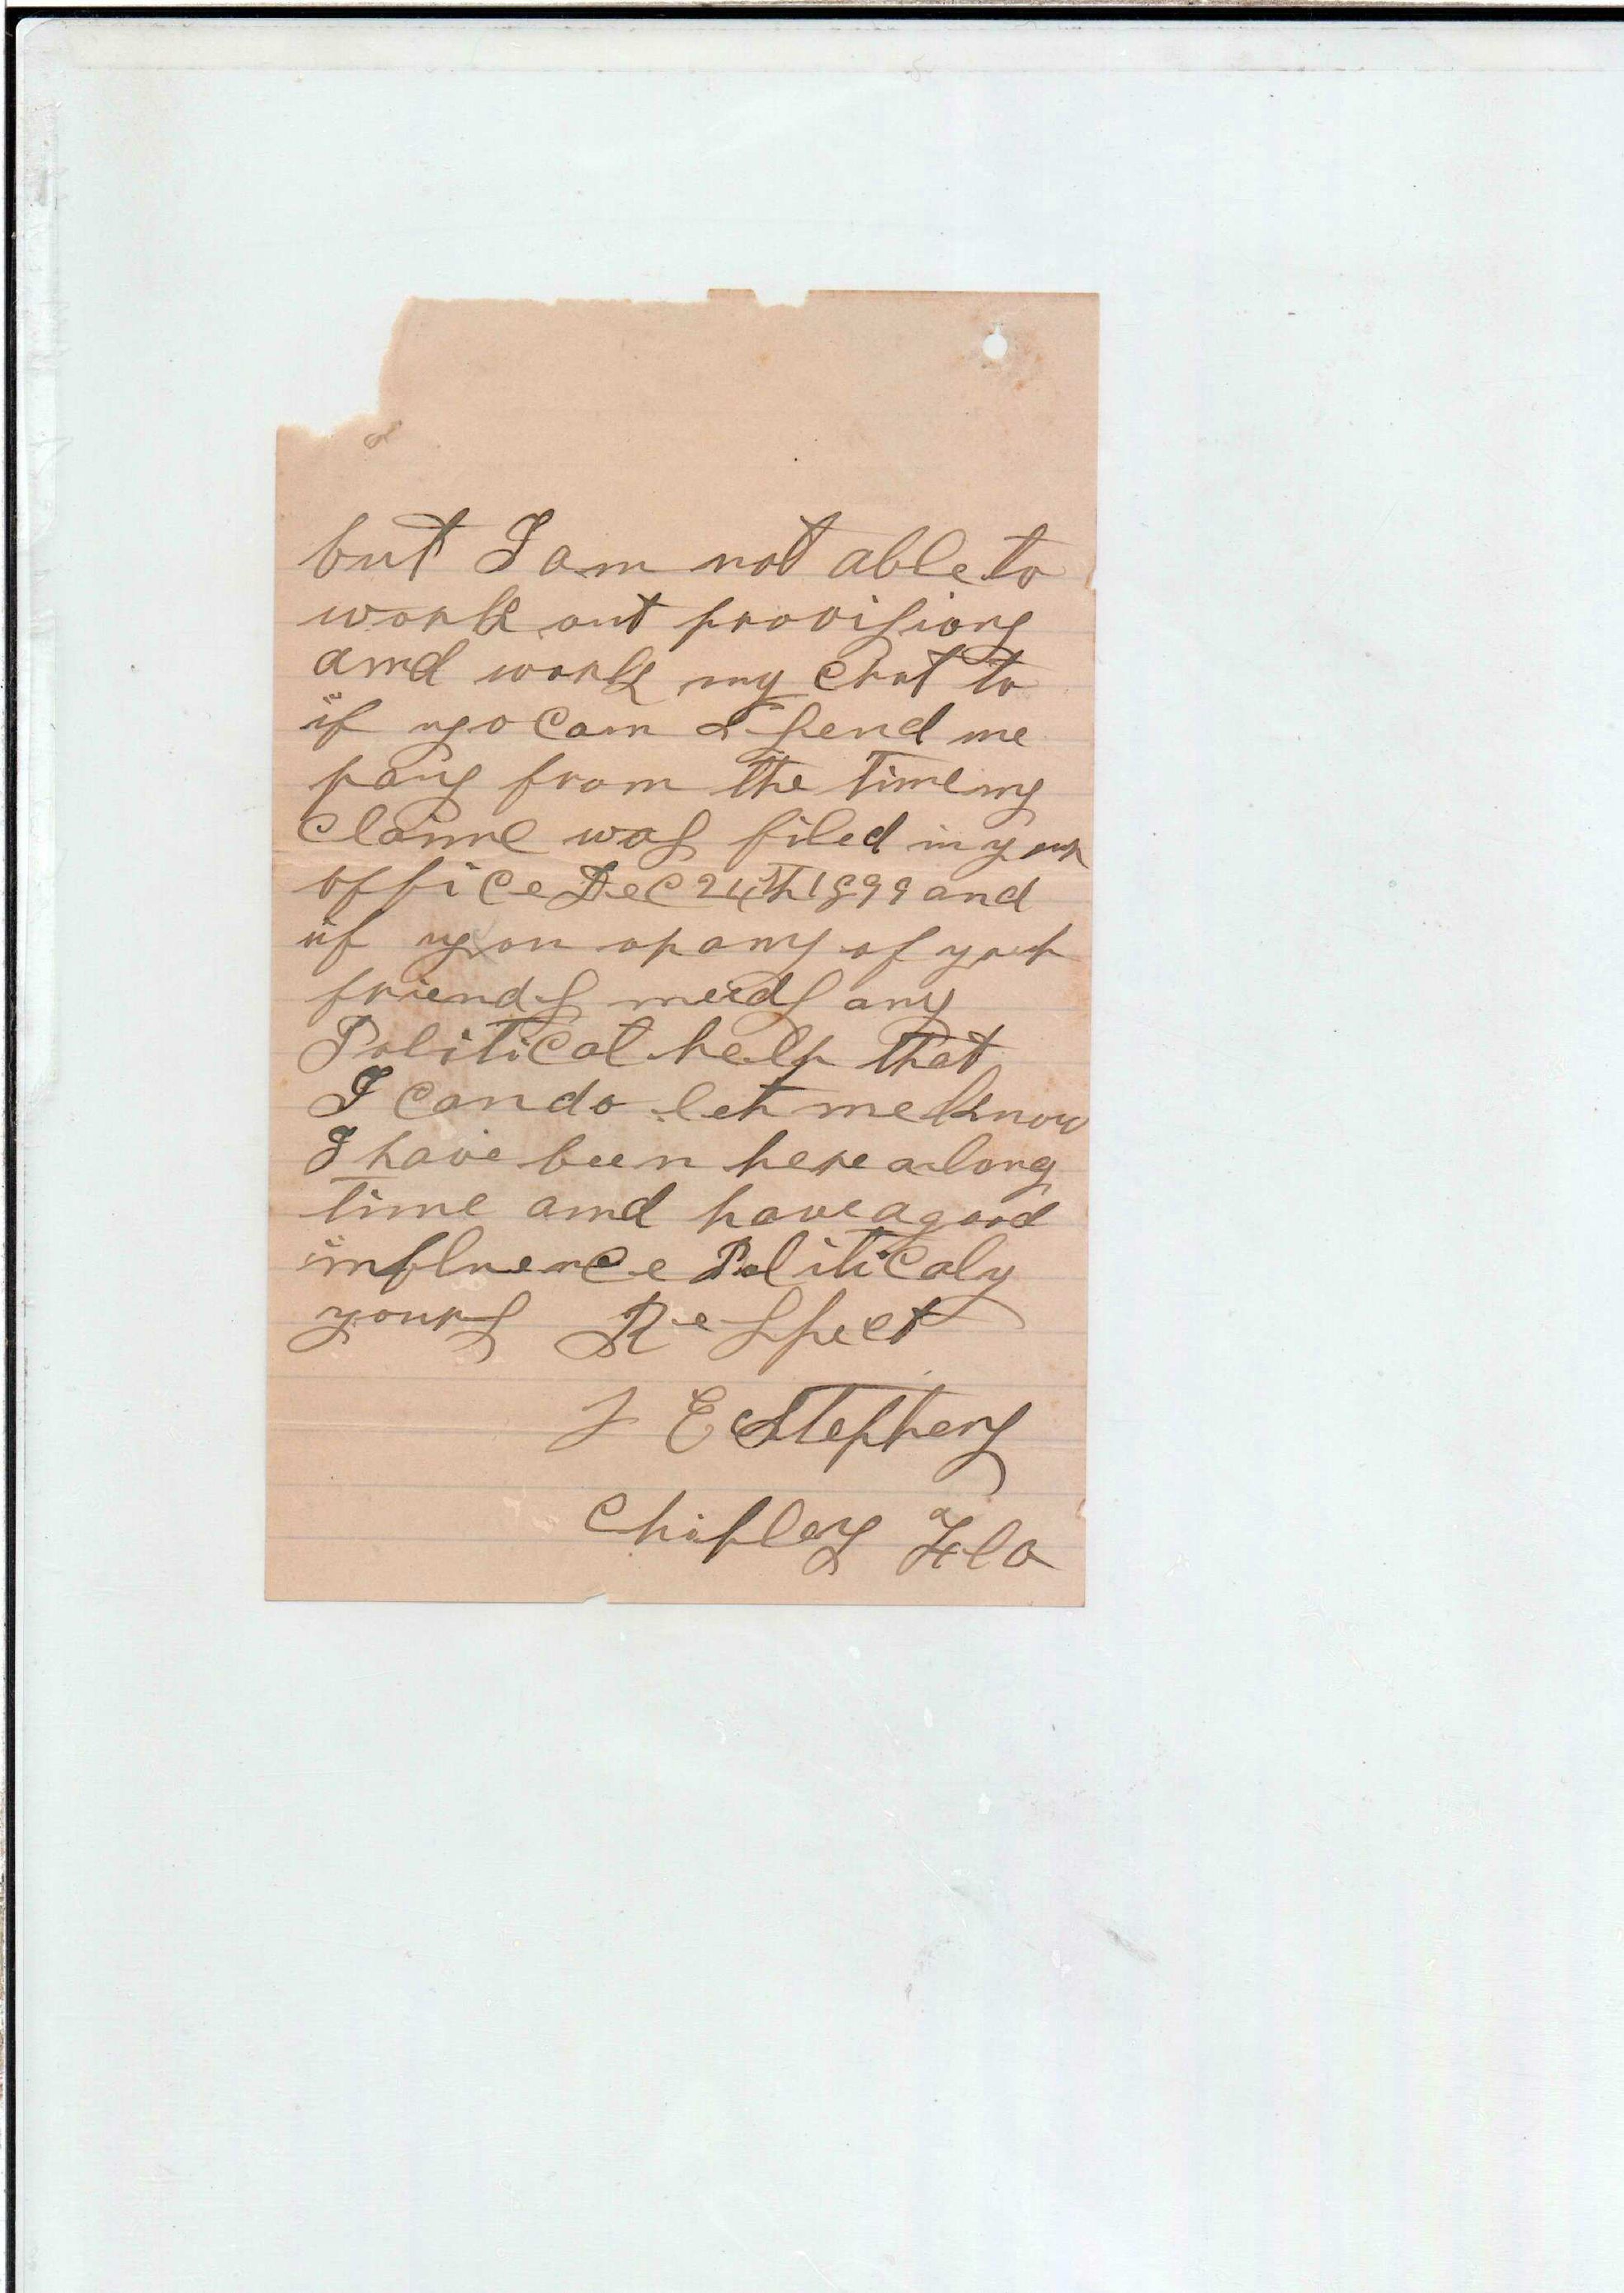 but I am not able to
work out provisions
and work my crot to
if yo can & send me
pay from the time my
Claime was filed in your
office Dec 24th 1899 and
if you or any of your
friends needs any
Political help that
I can do let me know
I have been here a long
time and have a good
influence Politicaly
yours Respect
E Stephens
Chipley Fla